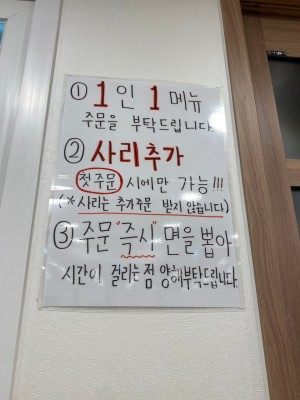 ① 1인 1메뉴
주문을 부탁드립니다.
② 사리추가
첫주문 시에만 가능!!!
(*사리는 추가주문 받지 않습니다)
③ 주문 "즉시" 면을 뽑아
시간이 걸리는점 양해부탁드립니다.